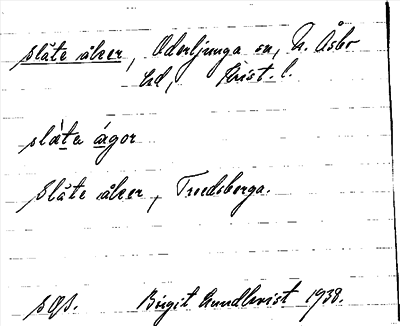 slåte åker, Oderljunga sn, N. Åsbo
hd, Krist. l.
slåta ågor
Slåte åker, Truedsberga.
sos. Birgit Lundkvist 1938.